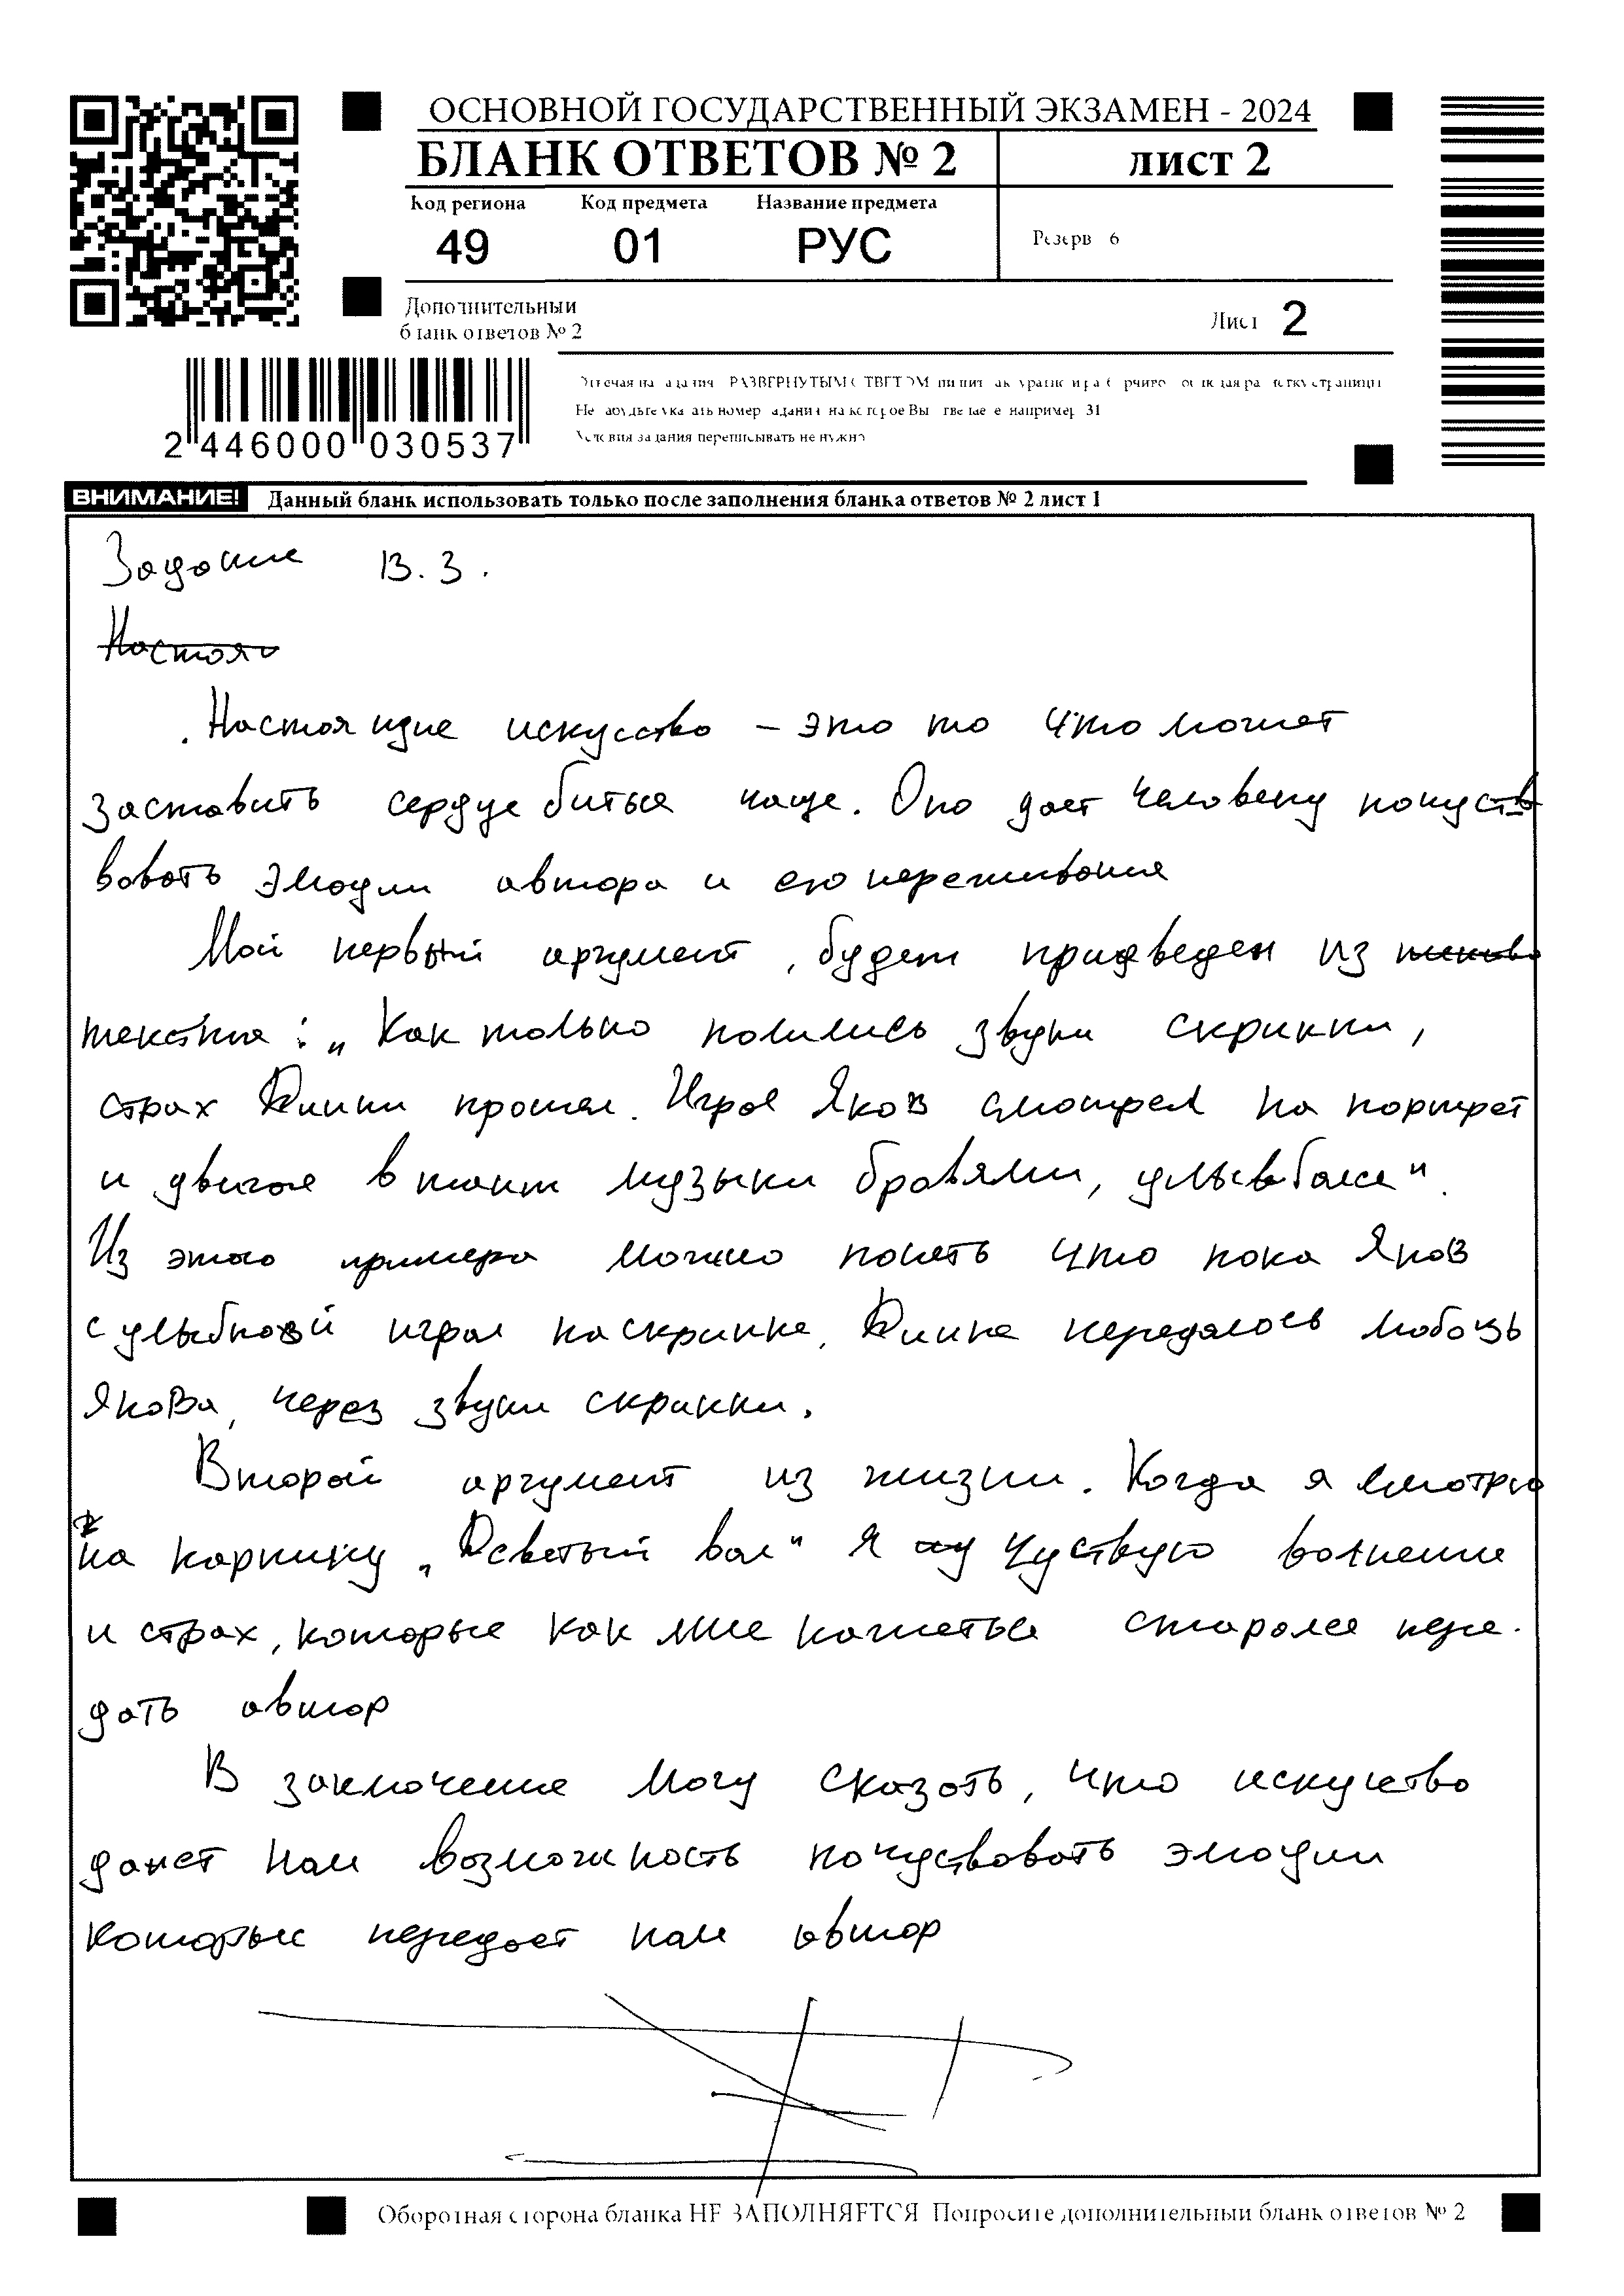 ОСНОВНОЙ ГОСУДАРСТВЕННЫЙ ЭКЗАМЕН - 2024
БЛАНК ОТВЕТОВ № 2
лист 2
Код региона
Код предмета
Название предмета
49
01
РУС
Резерв 6
Дополнительный
бланк ответов № 2
Лист 2
2 446000 030537
РАЗВЕРНУТЫМ
Условия задания переписывать не нужно
ВНИМАНИЕ! Данный бланк использовать только после заполнения бланка ответов № 2 лист 1
Задание 13.3.
Настоя
Настоящие искусство – это то что может
заставить сердце биться чаще. Оно дает человеку почуств
вовать эмоции автора и его переживания
Мой первый аргумент, будет приведен из
текста: „Как только полились звуки скрипки,
страх Динки прошел. Играя Яков смотрел на портрет
и двигая в такт музыки бровями, улыбался".
Из этого примера можно понять что пока Яков
с улыбкой играл на скрипке, Динке передалось любовь
Якова, через звуки скрипки.
Второй аргумент из жизни. Когда я смотрю
на картину „Девятый вал" Я чуствую волнение
и страх, которые как мне кажеться старался пере-
дать автор
В заключение могу сказать, что искуство
дает нам возможность почуствовать эмоции
которые передает нам автор
Оборотная сторона бланка НЕ ЗАПОЛНЯЕТСЯ Попросите дополнительный бланк ответов № 2